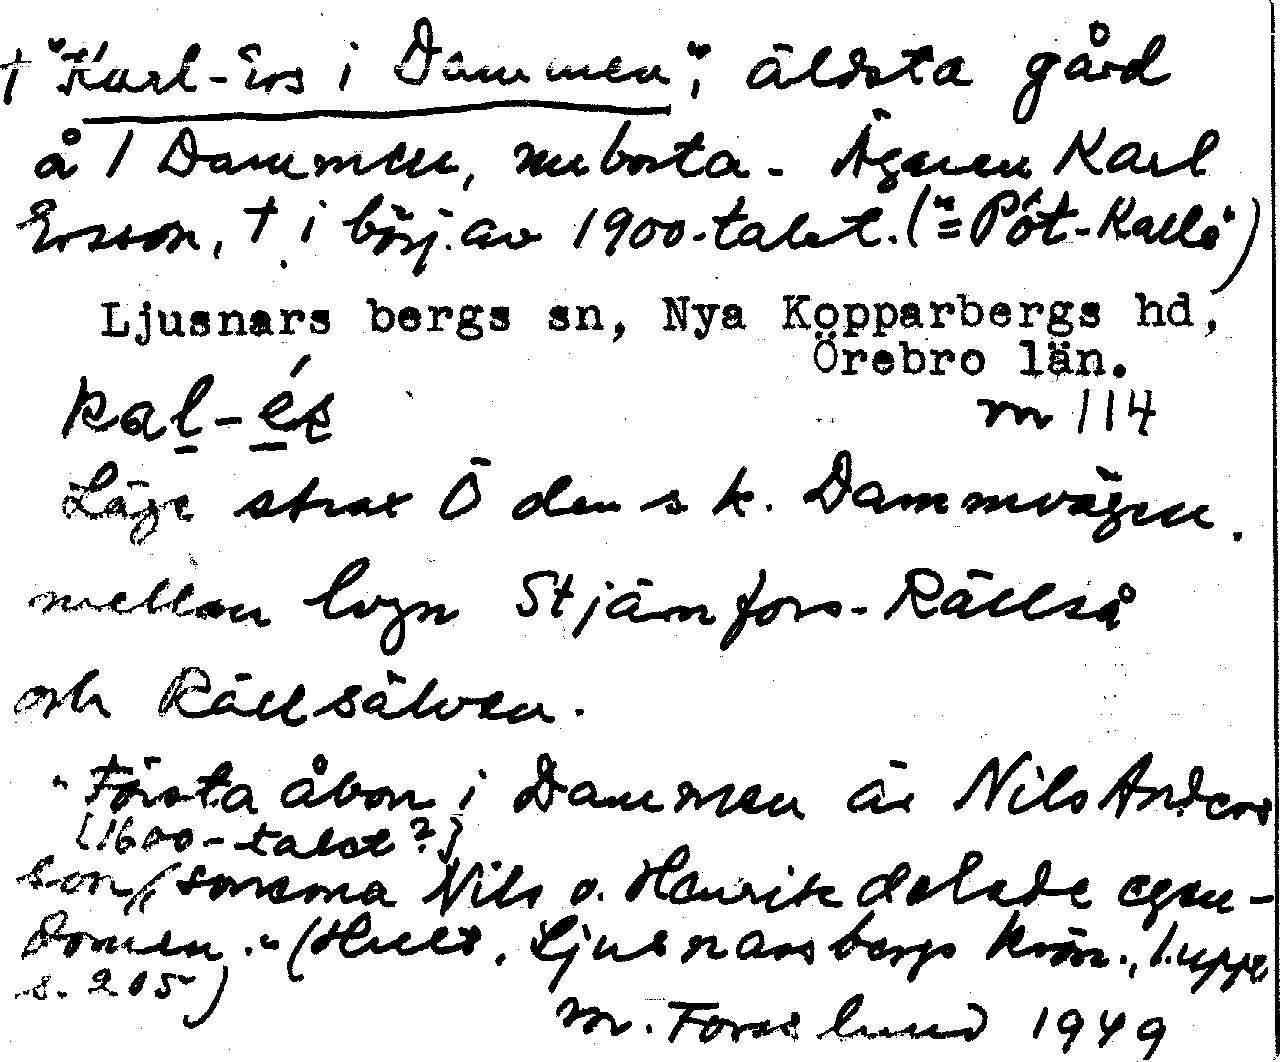 † "Karl-Ers i Dammen", äldsta gård
å 1 Dammen, nu borta. Ägaren Karl
Ersson, † i börj. av 1900-talet. (="Pôt-Kalle")
Ljusnars bergs sn, Nya Kopparbergs hd,
Örebro län.
kal-és
m 114
Läge strax Ö den s k. Dammvägen.
mellan byn Stjärnfors-Rällså
och Rällsälven.
"Första åbon i Dammen är Nils Anders
[1600-talet?]
son, sönerna Nils o. Henrik delade egen-
domen." (Hult, Ljusnarsbergs krön., 1. uppl
s. 205)
M. Forslund 1949